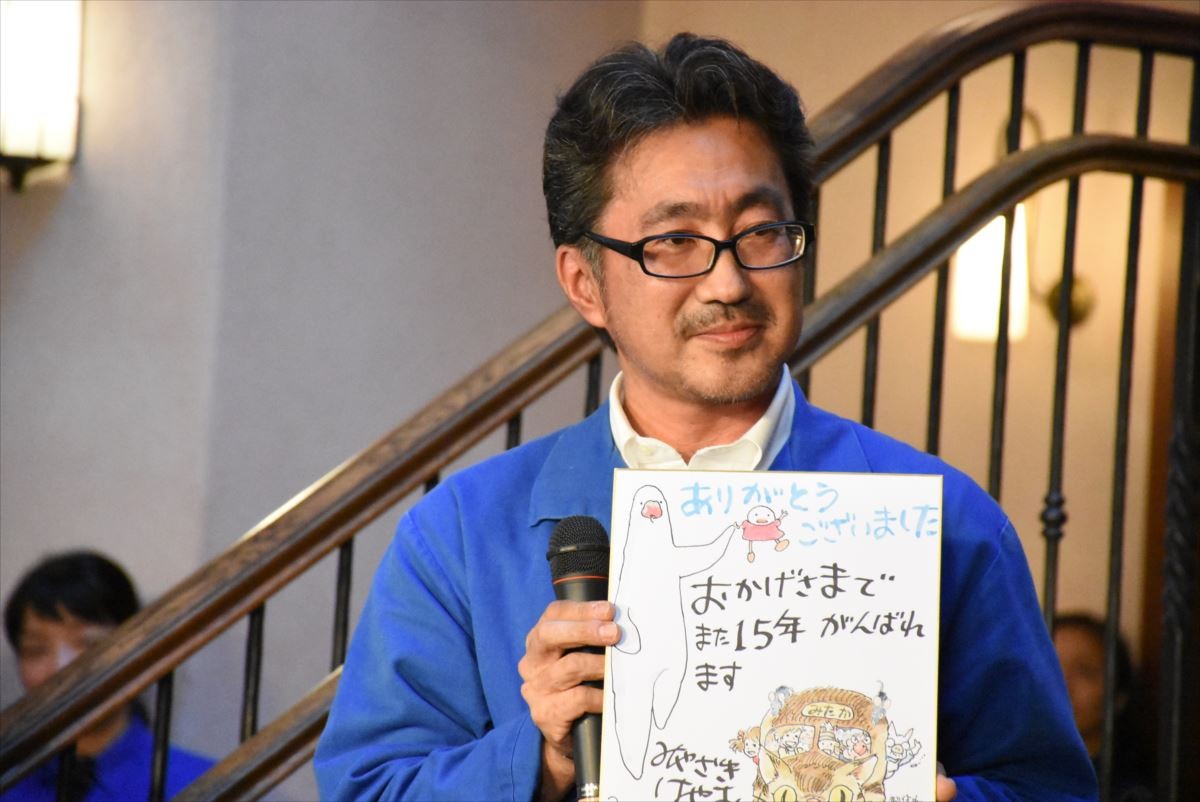 ありがとう
ございました
おかげさまで
また15年 がんばれ
ます
みやざき
はやお
みたか